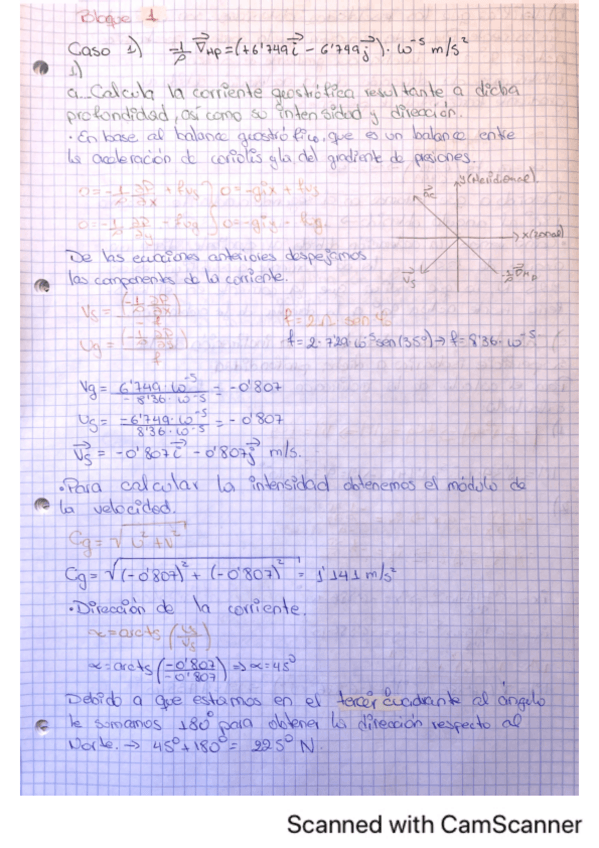 Bloque 1
Caso 1) -1/ρ ∇HP = (+6'749 i - 6'749 j) · 10^-5 m/s²
1)
a. Calcula la corriente geostrófica resultante a dicha
profundidad, así como su intensidad y dirección.
· En base al balance geostrófico, que es un balance entre
la aceleración de coriolis y la del gradiente de presiones.
y (Meridional)
x (zonal)
De las ecuaciones anteriores despejamos
las components de la corriente.
f = 2·7'29·10^-5 sen(35º) → f = 8'36·10^-5
Vg = 6'749·10^-5 / -8'36·10^-5 = -0'807
Ug = -6'749·10^-5 / 8'36·10^-5 = -0'807
Vg = -0'807 i - 0'807 j m/s.
· Para calcular la intensidad obtenemos el módulo de
la velocidad.
Cg = √(U² + V²)
Cg = √((-0'807)² + (-0'807)²) = 1'141 m/s²
· Dirección de la corriente.
α = arctg (Ug/Vg)
α = arctg (-0'807/-0'807) ⇒ α = 45º
Debido a que estamos en el tercer cuadrante al ángulo
le sumamos 180º para obtener la dirección respecto al
Norte. → 45º + 180º = 225º N.
Scanned with CamScanner